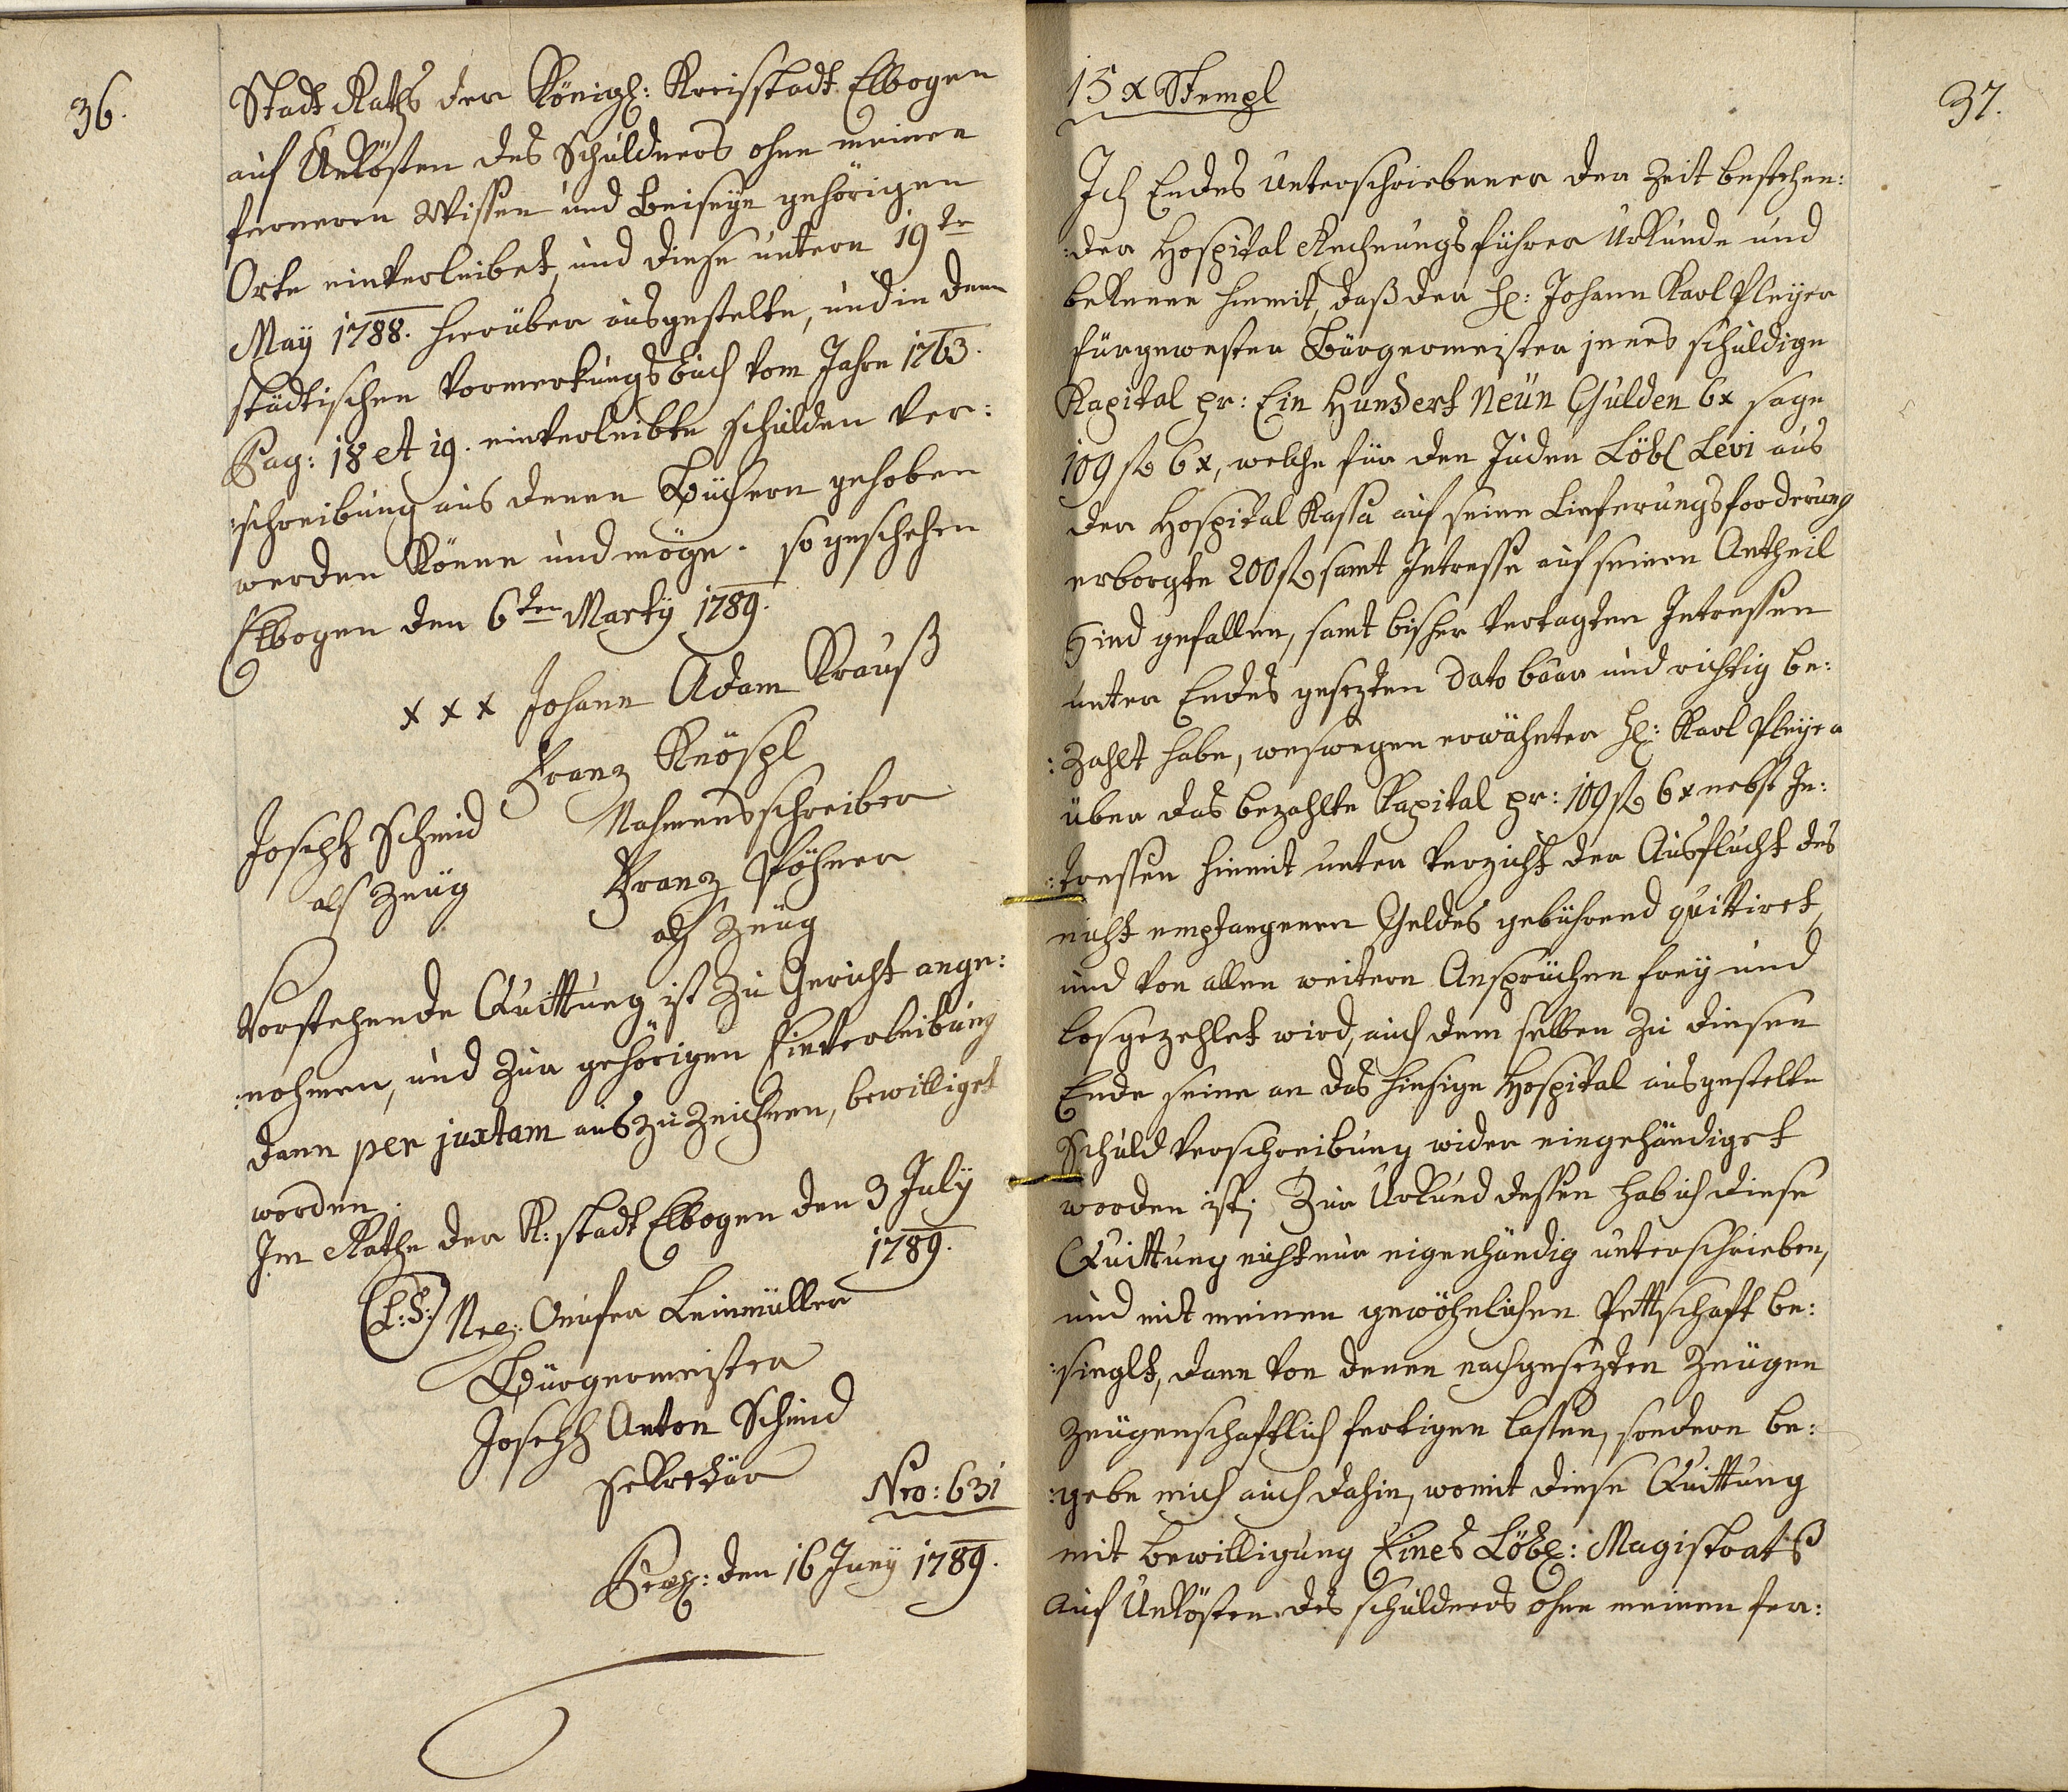 36.
Stadt Raths der Königl: Kreisstadt Elbogen
auf Unkösten des Schuldners ohne meinen
ferneren Wissen und Beiseÿn gehörigen
Orte einverleibet, und diese untern 19te
Maÿ 1788. hierüber ausgestelte, und in dem
städtischen Vormerkungsbuch vom Jahre 1763.
Pag: 18 et 19. einverleibte schulden ver:
:schreibung aus denen Büchern gehoben
werden könne und möge. so geschehen
Elbogen den 6ten Martÿ 1789.
x x x Johann Adam Krauß
Franz Knöspl
Nahmensschreiber
Joseph Schmid
als Zeüg
Franz Pöhner
als Zeüg
Vorstehende Quittung ist zu Gericht ange:
:nohmen, und zur gehörigen Einverleibung
dann per juxtam auszuzeichnen, bewilliget
worden.
Im Rathe der K: stadt Elbogen den 3 Julÿ
1789.
(L:S:) Leinmüller
Bürgermeister
Joseph Anton Schmid
sekretär
Nro: 631
den 16 Junÿ 1789.
37.
15 x Stempl
Ich Endes Unterschriebener der Zeit bestehen:
:der Hospital Rechnungsführer Urkunde und
bekenne hiemit, daß der H: Johann Karl Pleÿer
fürgewester Bürgermeister jenes schuldige
Kapital pr: Ein Hundert Neün Gulden 6x sage
109 fl 6x, welche für den Juden Löbl Levi aus
der Hospital Kassa auf seine Lieferungsforderung
erborgte 200 fl samt Intresse auf seinen Antheil
Sind gefallen, samt bisher vertagten Intressen
unter Endes gesezten Dato baar und richtig be:
:zahlt habe, weswegen erwähnter H: Karl Pleÿer
über das bezahlte Kapital pr: 109 fl 6x nebst In:
:tressen hiemit unter Verzicht der Ausflucht des
nicht empfangenen Geldes gebührend quittiret,
und von allen weitern Ansprüchen freÿ und
losgezehlet wird, auch dem selben zu diesen
Ende seine an das hiesige Hospital ausgestelte
Schuldverschreibung wider eingehändiget
worden ist; Zur Urkund dessen hab ich diese
Quittung nicht nur eigenhändig unterschrieben,
und mit meinen gewöhnlichen Pettschaft be:
:sieglt, dann von denen nachgesezten Zeügen
zeügenschaftlich fertigen lassen, sondern be:
:gebe mich auch dahin, womit diese Quittung
mit bewilligung Eines Löbl: Magistrats
auf Unkösten des schuldners ohne meinen fer: